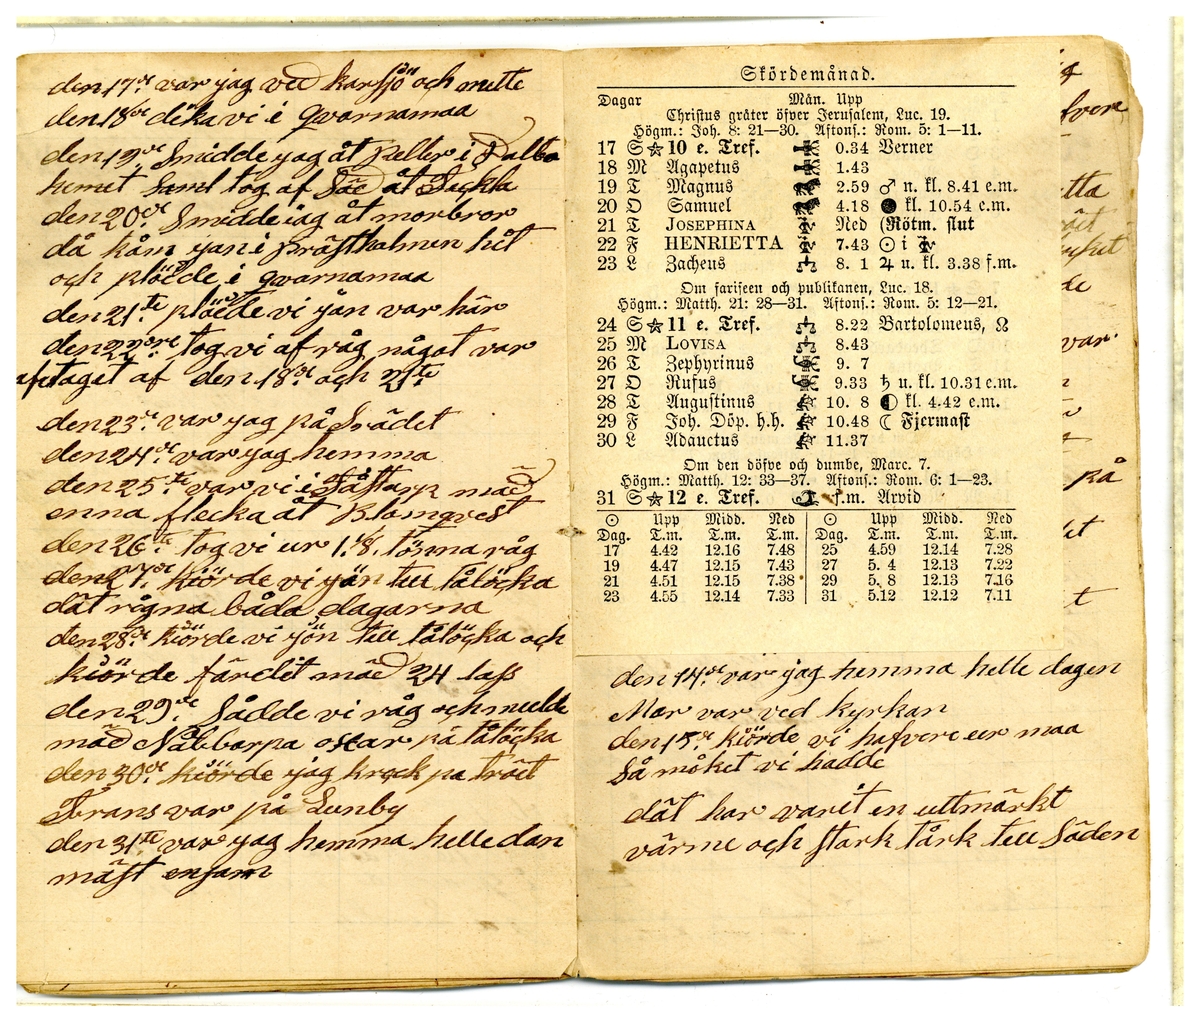 den 17de var jag ved karsjö och mette
den 18de dika vi i qvarnamaa
den 19de Smidde jag åt Peller i Dalbo
hemet Samt tog af Säd åt Seckla
den 20de Smidde iag åt morbror
då kåm yan i präfthalmen hit
och plöide i qvarnamaa
den 21te plöide vi yän var här
den 22dre tog vi af råg något var
aftaget af den 18de och 21te
den 23de var jag på Trädet
den 24de var jag hemma
den 25te var vi i Tåftarp mäd
enna flecka åt Blomqvest
den 26te tog vi ur 1.18. tönna råg
den 27de kiörde vi yän till tålöcka
dät rägna båda dagarna
den 28de kiörde vi yön till tålöcka och
kiörde färdit mäd 24 lass
den 29de Sådde vi råg och mulde
mäd Nåbbarpa oxar på tålöcka
den 30de kiörde jag krock pa träet
Frans var på Lunby
den 31te var jag hemma helle dan
mäst ensam
Skördemånad.
Dagar Mån. Upp
Christus gråter öfver Jerusalem, Luc. 19.
Högm.: Joh. 8: 21—30. Aftons.: Rom. 5: 1—11.
17 S ☆ 10 e. Tref. 0.34 Verner
18 M Agapetus 1.43
19 T Magnus 2.59 ♂ n. kl. 8.41 e.m.
20 O Samuel 4.18 ● kl. 10.54 e.m.
21 T JOSEPHINA Ned (Rötm. slut
22 F HENRIETTA 7.43 ☉ i ♍
23 L Zacheus 8. 1 ♃ u. kl. 3.38 f.m.
Om fariseen och publikanen, Luc. 18.
Högm.: Matth. 21: 28—31. Aftons.: Rom. 5: 12—21.
24 S ☆ 11 e. Tref. 8.22 Bartolomeus, ☊
25 M LOVISA 8.43
26 T Zephyrinus 9. 7
27 O Rufus 9.33 ♄ u. kl. 10.31 e.m.
28 T Augustinus 10. 8 ◐ kl. 4.42 e.m.
29 F Joh. Döp. h.h. 10.48 ☾ Fjermast
30 L Adauctus 11.37
Om den döfve och dumbe, Marc. 7.
Högm.: Matth. 12: 33—37. Aftons.: Rom. 6: 1—23.
31 S ☆ 12 e. Tref. f.m. Arvid
☉ Upp Midd. Ned ☉ Upp Midd. Ned
Dag. T.m. T.m. T.m. Dag. T.m. T.m. T.m.
17 4.42 12.16 7.48 25 4.59 12.14 7.28
19 4.47 12.15 7.43 27 5. 4 12.13 7.22
21 4.51 12.15 7.38 29 5. 8 12.13 7.16
23 4.55 12.14 7.33 31 5.12 12.12 7.11
den 14de var jag hemma helle dagen
Mor var ved kyrkan
den 15de kiörde vi hafvere ur maa
Så möket vi hadde
dät har varit en uttmärkt
värme och stark tårk till Säden